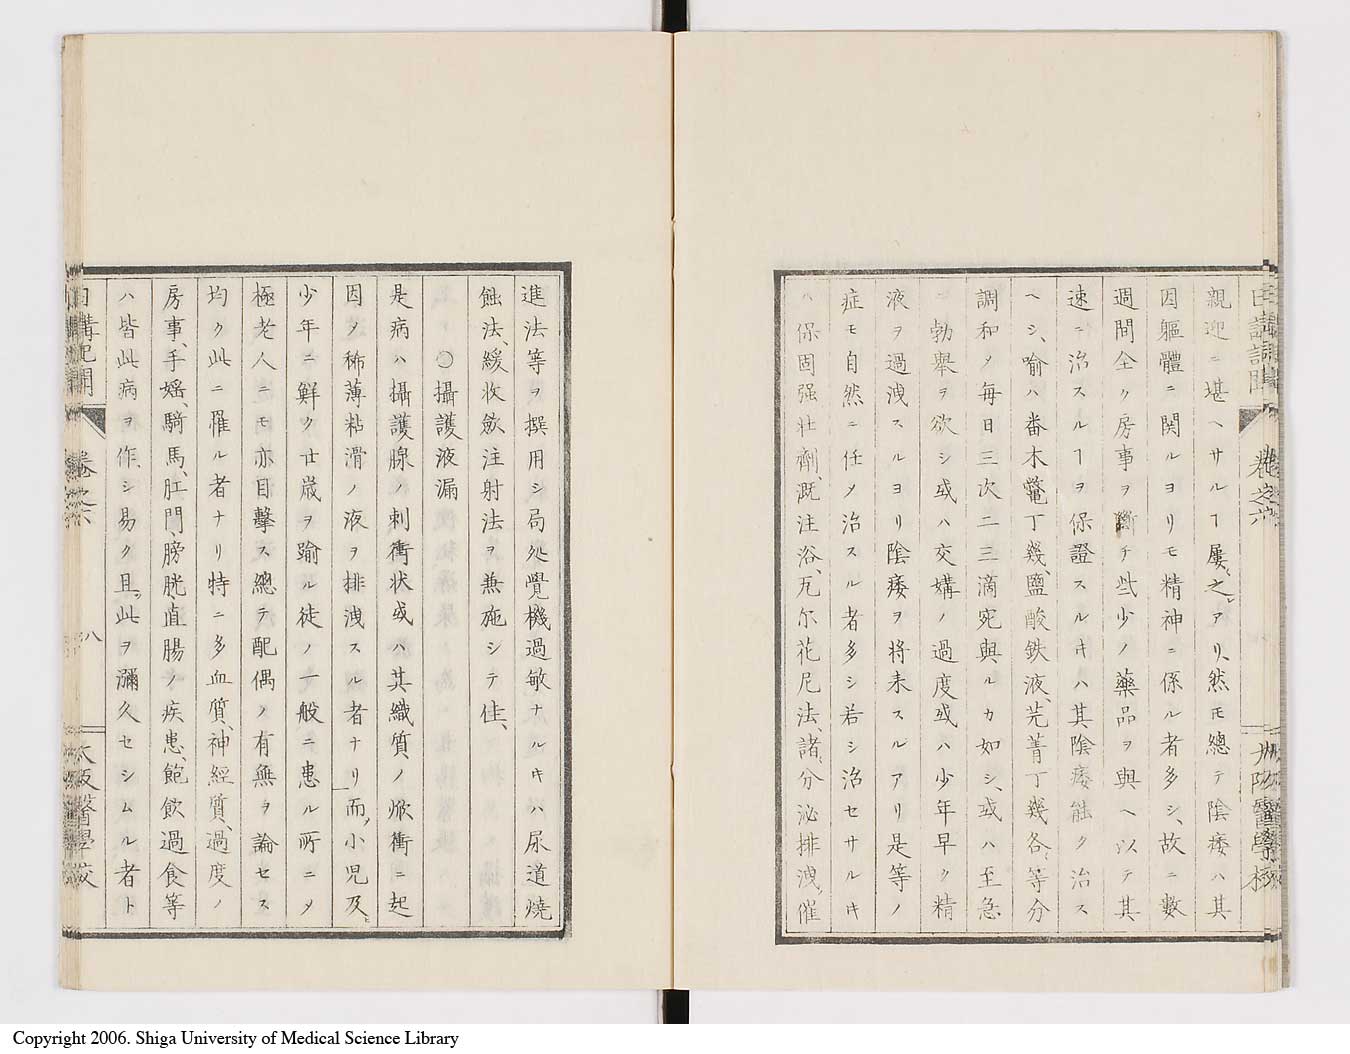 親迎ニ堪ヘサルヿ屡之アリ、然モ總テ陰痿ハ其
因軀體ニ関ルヨリモ精神ニ係ル者多シ、故ニ數
週間全ク房事ヲ斷チ些少ノ藥品ヲ與ヘ以テ其
速ニ治スルヿヲ保證スルキハ其陰痿能ク治ス
ヘシ、喩ハ番木鼈丁幾、鹽酸鉄液、芫菁丁幾各等分
調和ノ毎日三次二三滴宛與ルカ如シ、或ハ至急
ニ勃擧ヲ欲シ或ハ交媾ノ過度或ハ少年早ク精
液ヲ過洩スルヨリ陰痿ヲ将来スルアリ是等ノ
症モ自然ニ任メ治スル者多シ若シ治セサルキ
ハ保固强壮劑、溉注浴、瓦尔花尼法、諸分泌排洩催
進法等ヲ撰用シ局処覺機過敏ナルキハ尿道燒
蝕法、緩收斂注射法ヲ兼施シテ佳、
〇攝護液漏
是病ハ攝護腺ノ刺衝状或ハ其織質ノ焮衝ニ起
因ノ稀薄粘滑ノ液ヲ排洩スル者ナリ而小児及
少年ニ鮮ク廿歳ヲ踰ル徒ノ一般ニ患ル所ニメ
極老人ニモ亦目擊ス總テ配偶ノ有無ヲ論セス
均ク此ニ罹ル者ナリ特ニ多血質、神經質、過度ノ
房事、手婬、騎馬、肛門、膀胱、直腸ノ疾患、飽飲過食等
ハ皆此病ヲ作シ易ク且此ヲ瀰久セシムル者ト
日講記聞
卷之六
八
大阪醫學校